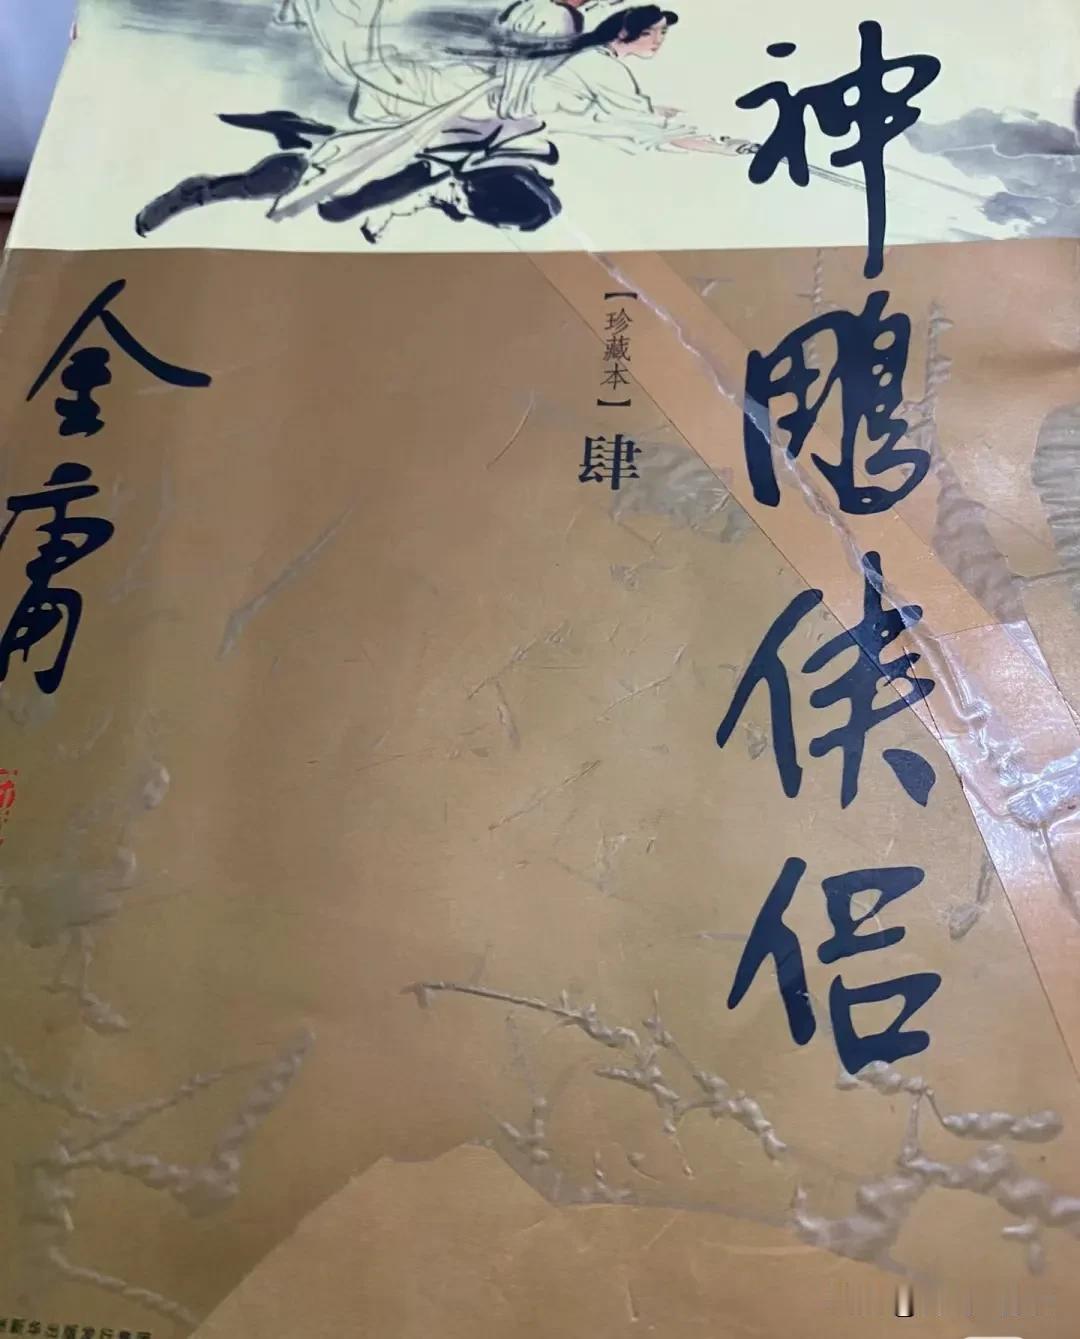 神鵰侠侣
【珍藏本】
肆
金庸
新华出版发行集团